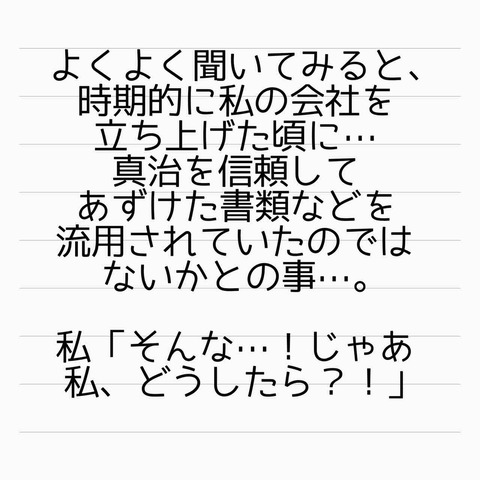 よくよく聞いてみると、
時期的に私の会社を
立ち上げた頃に…
真治を信頼して
あずけた書類などを
流用されていたのでは
ないかとの事…。
私「そんな…！じゃあ
私、どうしたら？！」